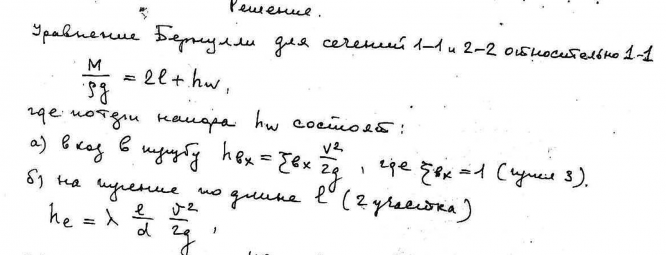 Решение.
Уравнение Бернулли для сечений 1-1 и 2-2 относительно 1-1
M/ρg = 2l + hw,
где потери напора hw состоят:
а) вход в трубу hвх = ξвх V²/2g, где ξвх = 1 (прил 3).
б) на трение по длине l (2 участка)
he = λ l/d V²/2g,